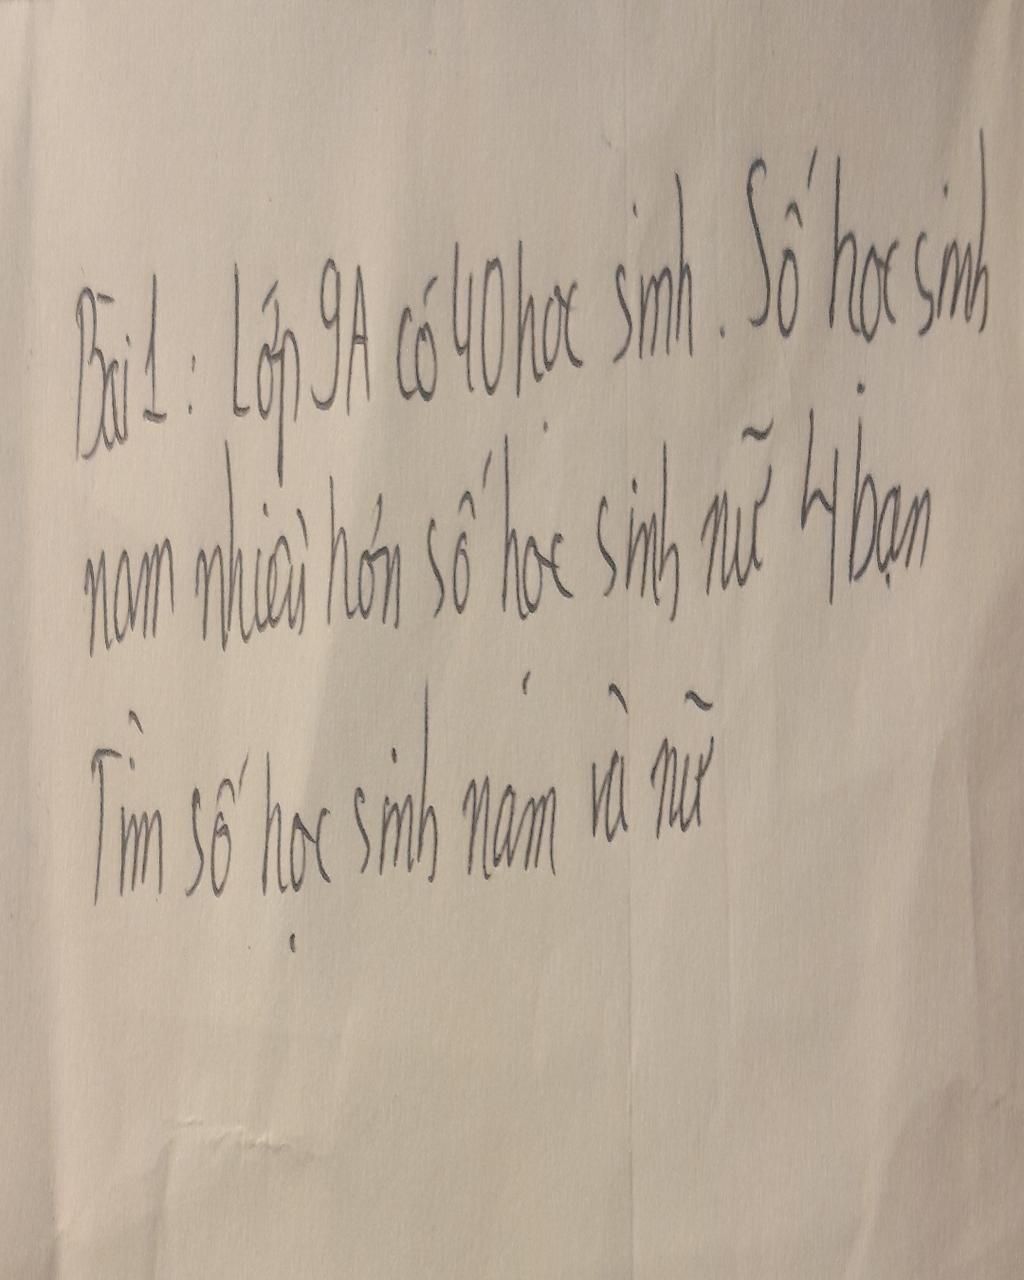 Bài 1: Lớp 9A có 40 học sinh. Số học sinh
nam nhiều hơn số học sinh nữ 4 bạn
Tìm số học sinh nam và nữ